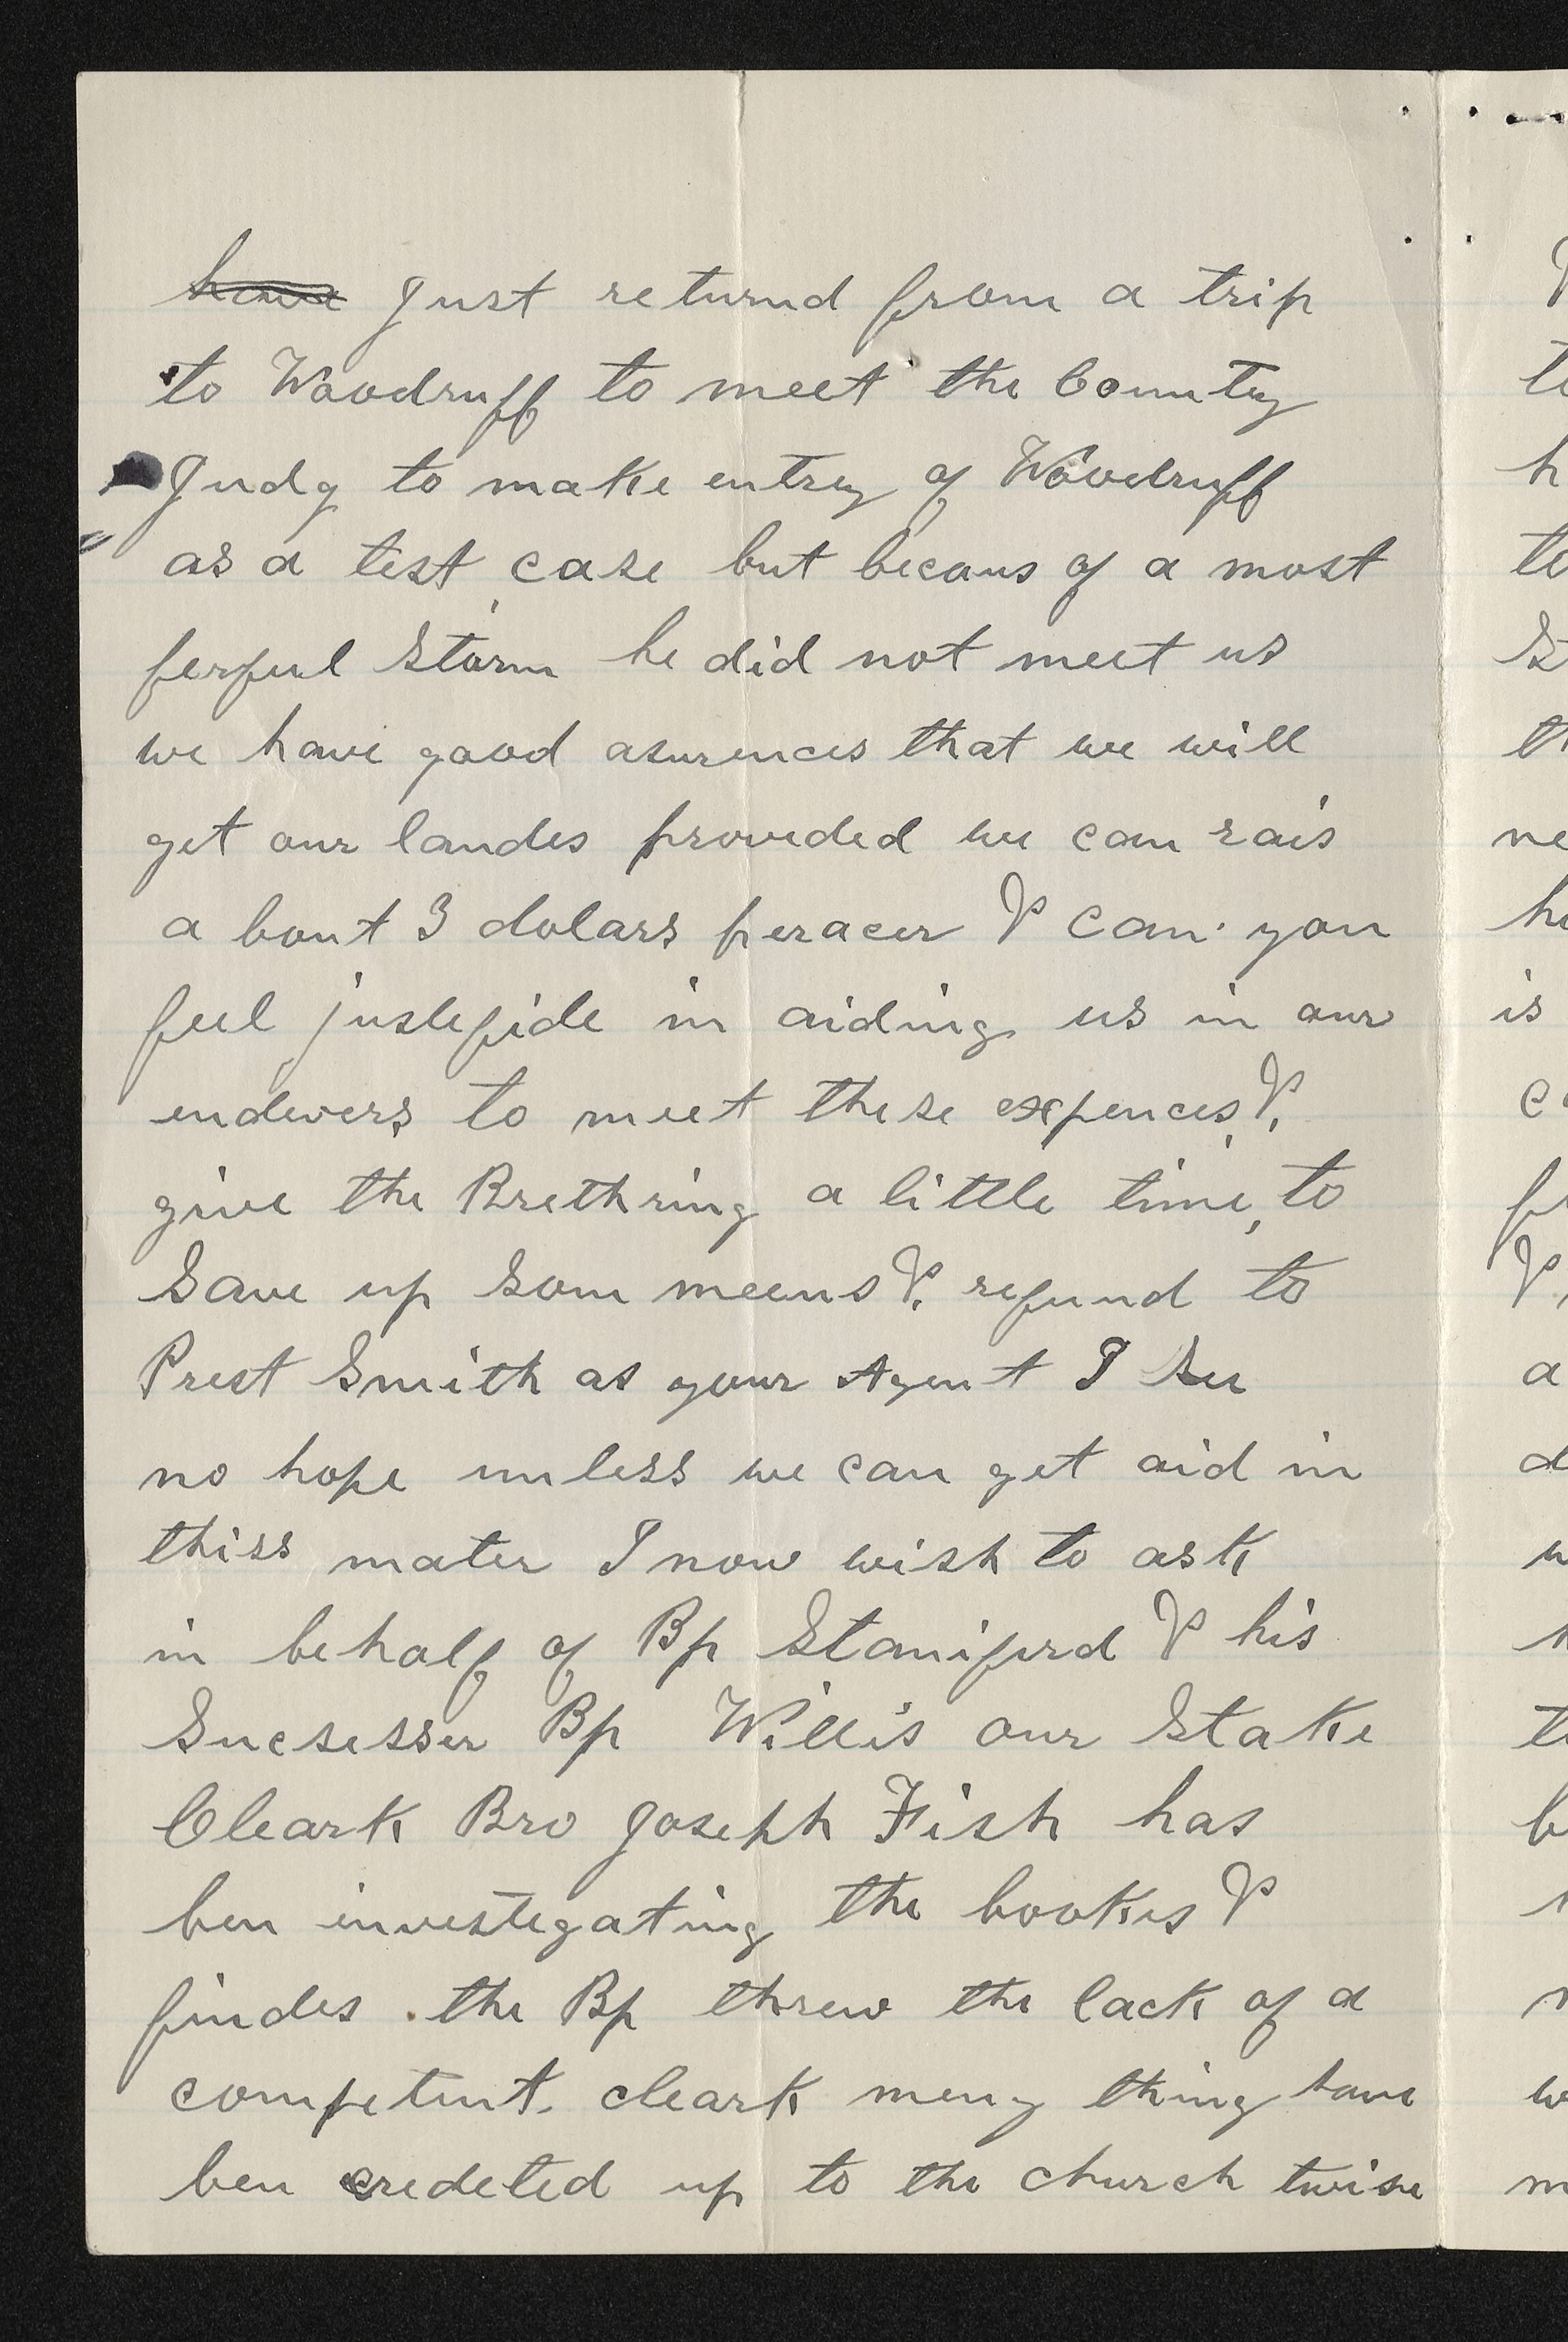 have Just returnd from a trip
to Woodruff to meet the County
Judg to make entrey of Woodruff
as a test case but becaus of a most
ferful Storm he did not meet us
we have good asurences that we will
get our landes proveded we can rais
a bout 3 dolars per acer & can you
feel justefide in aiding us in our
endevers to meet these expences &
give the Brethring a little time, to
Save up Som meens & refund to
Prest Smith as your Agent I See
no hope unless we can get aid in
thiss mater I now wish to ask
in behalf of Bp Staniford & his
Sucsesser Bp Willis our Stake
Cleark Bro Joseph Fish has
ben investegating the bookes &
findes the Bp threw the lack of a
competent. cleark meny thing have
ben credeted up to the church twise